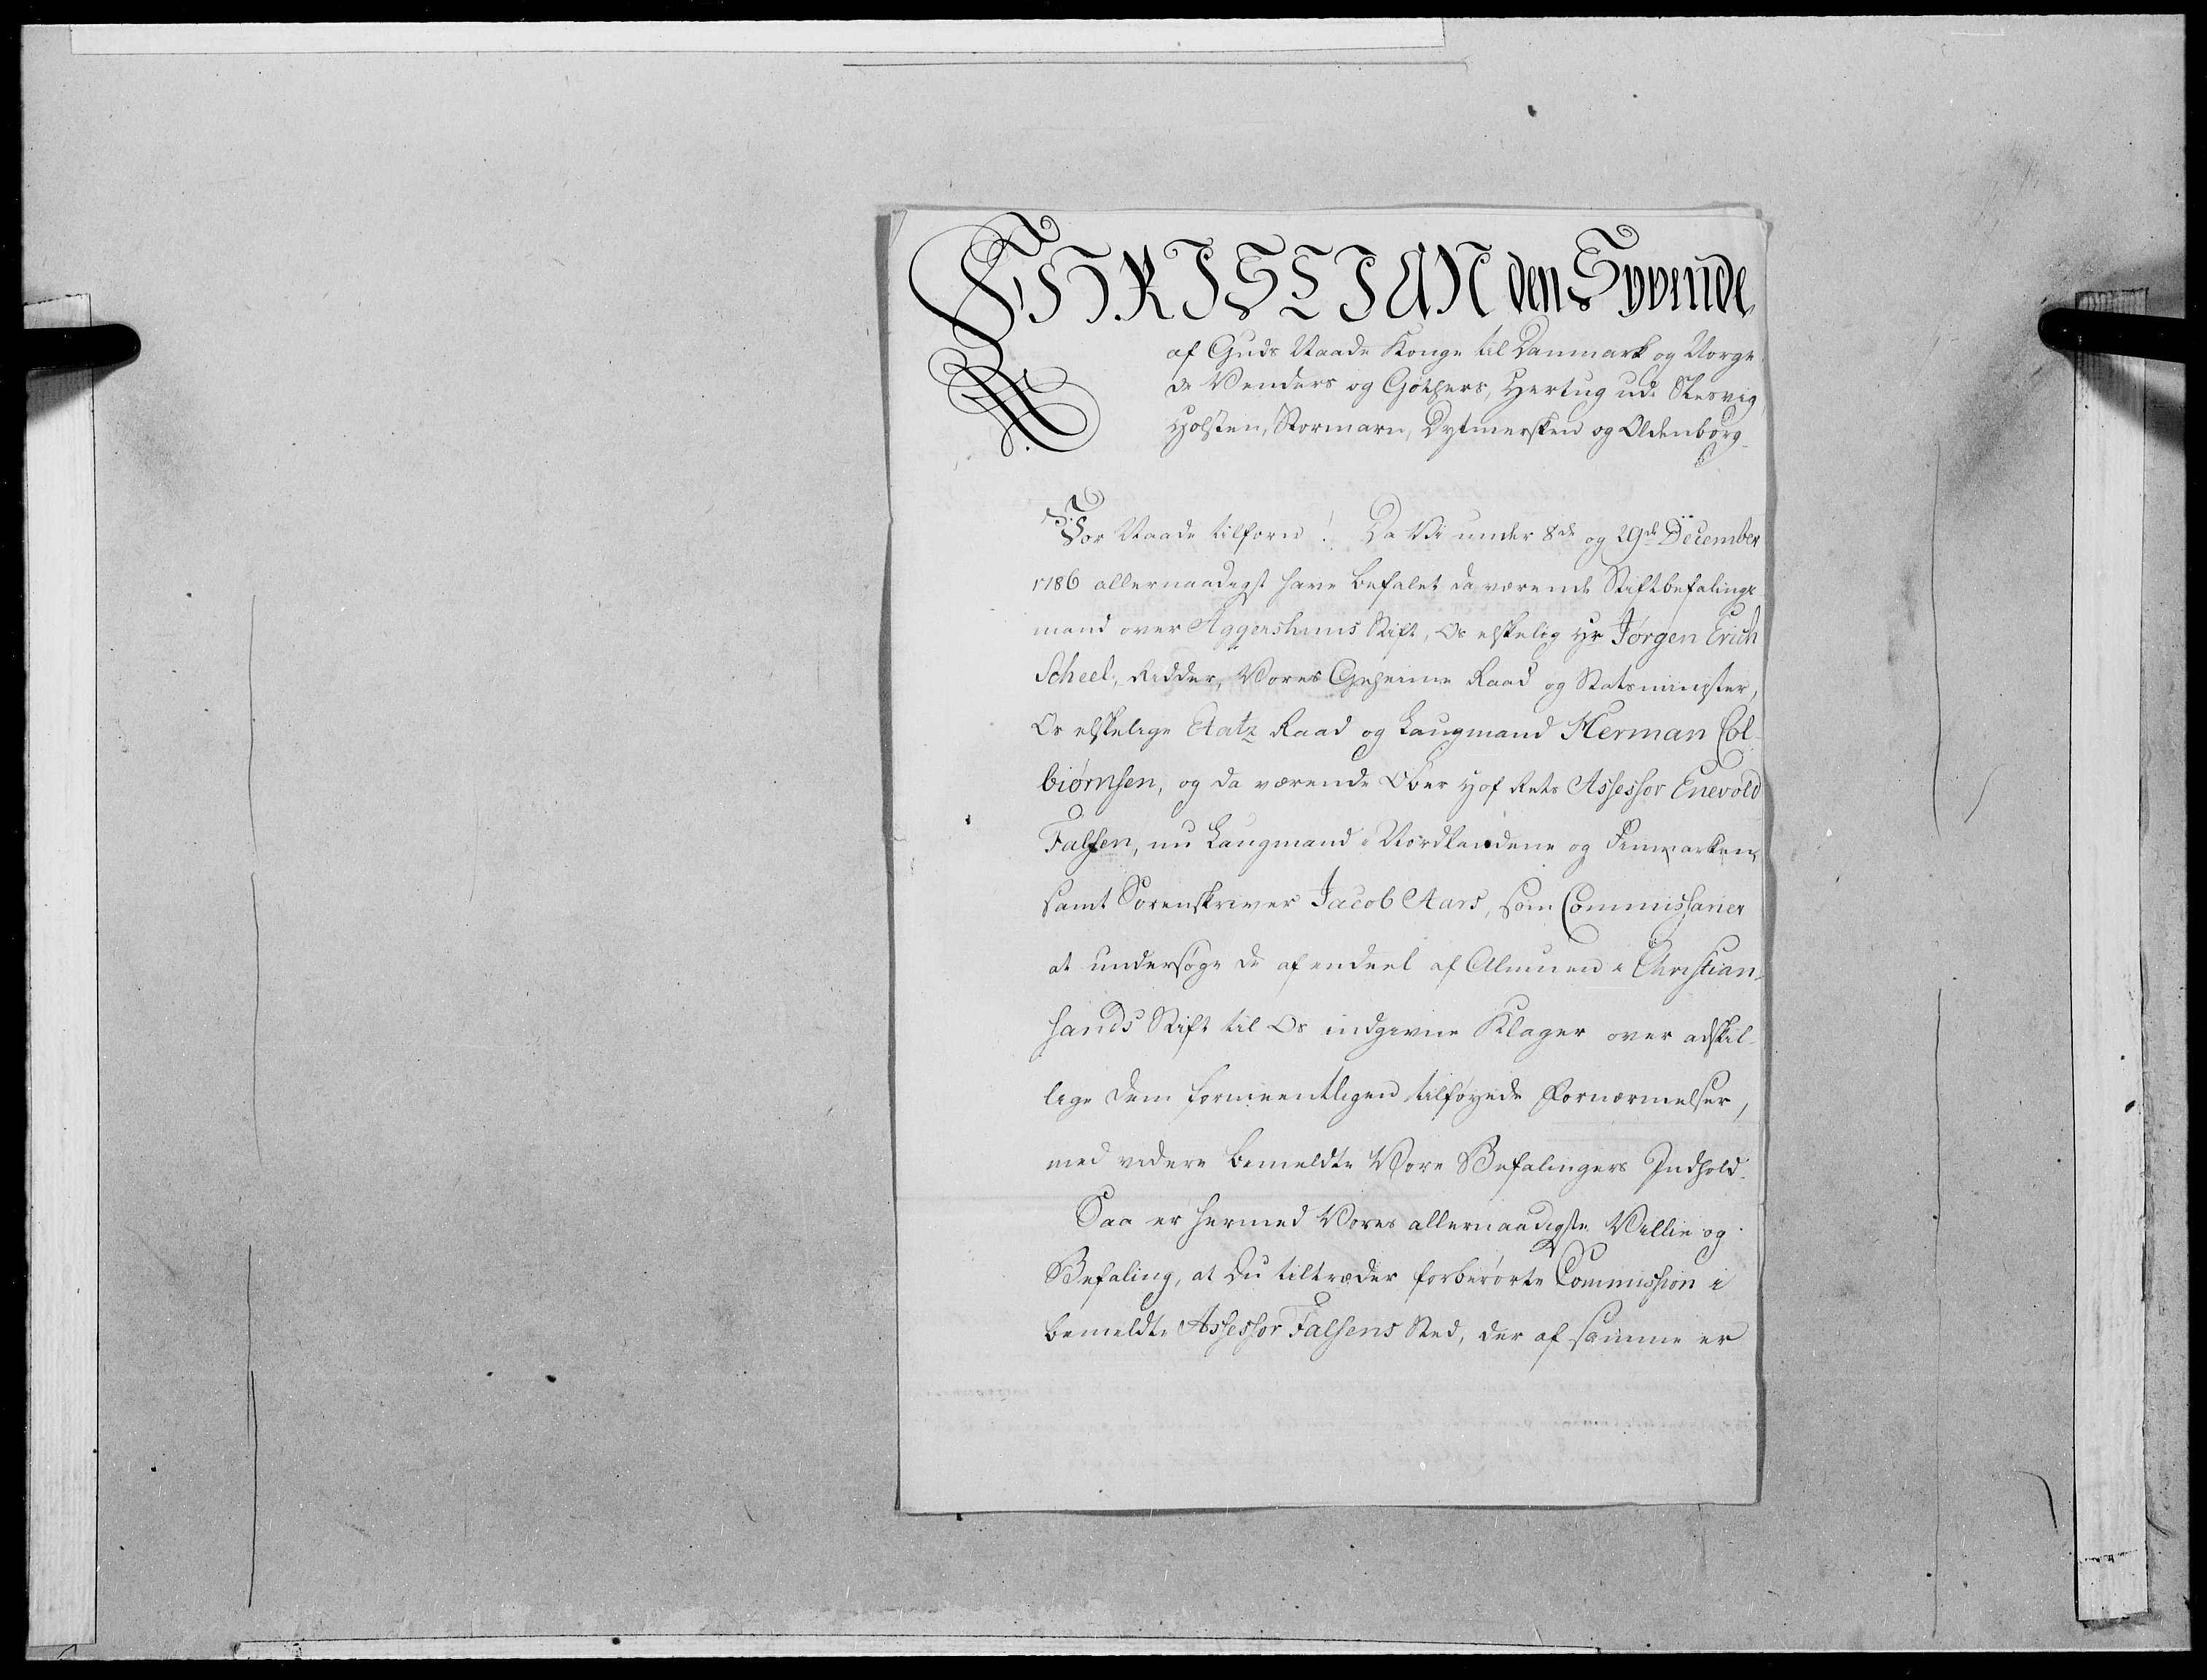 CHRISTIAN den Syvende
af Guds Naade Konge til Danmark og Norge,
de Venders og Gothers, Hertug udi Slesvig,
Holsten, Stormarn, Dytmersken og Oldenborg.
Vor Naade tilforn! Da Vi under 8de og 29de December
1786 allernaadigst have befalet da værende Stiftbefalings-
mand over Aggershuus Stift, Os elskelig Hr Jørgen Erich
Scheel, Ridder, Vores Geheime Raad og Statsminister,
Os elskelige Etatz Raad og Laugmand Herman Col-
biørnsen, og da værende Ober Hof Rets Assessor Enevold
Falsen, nu Laugmand i Nordlandene og Finmarken,
samt Sorenskriver Jacob Aars, som Commissarier
at undersøge de af endeel af Almuen i Christian-
sands Stift til Os indgivne Klager over adskil-
lige dem formeentligen tilføyede Fornærmelser,
med videre bemeldte Vore Befalingers Indhold.
Saa er hermed Vores allernaadigste Villie og
Befaling, at Du tiltræder forberørte Commission i
bemeldte Assessor Falsens Sted, der af samme er